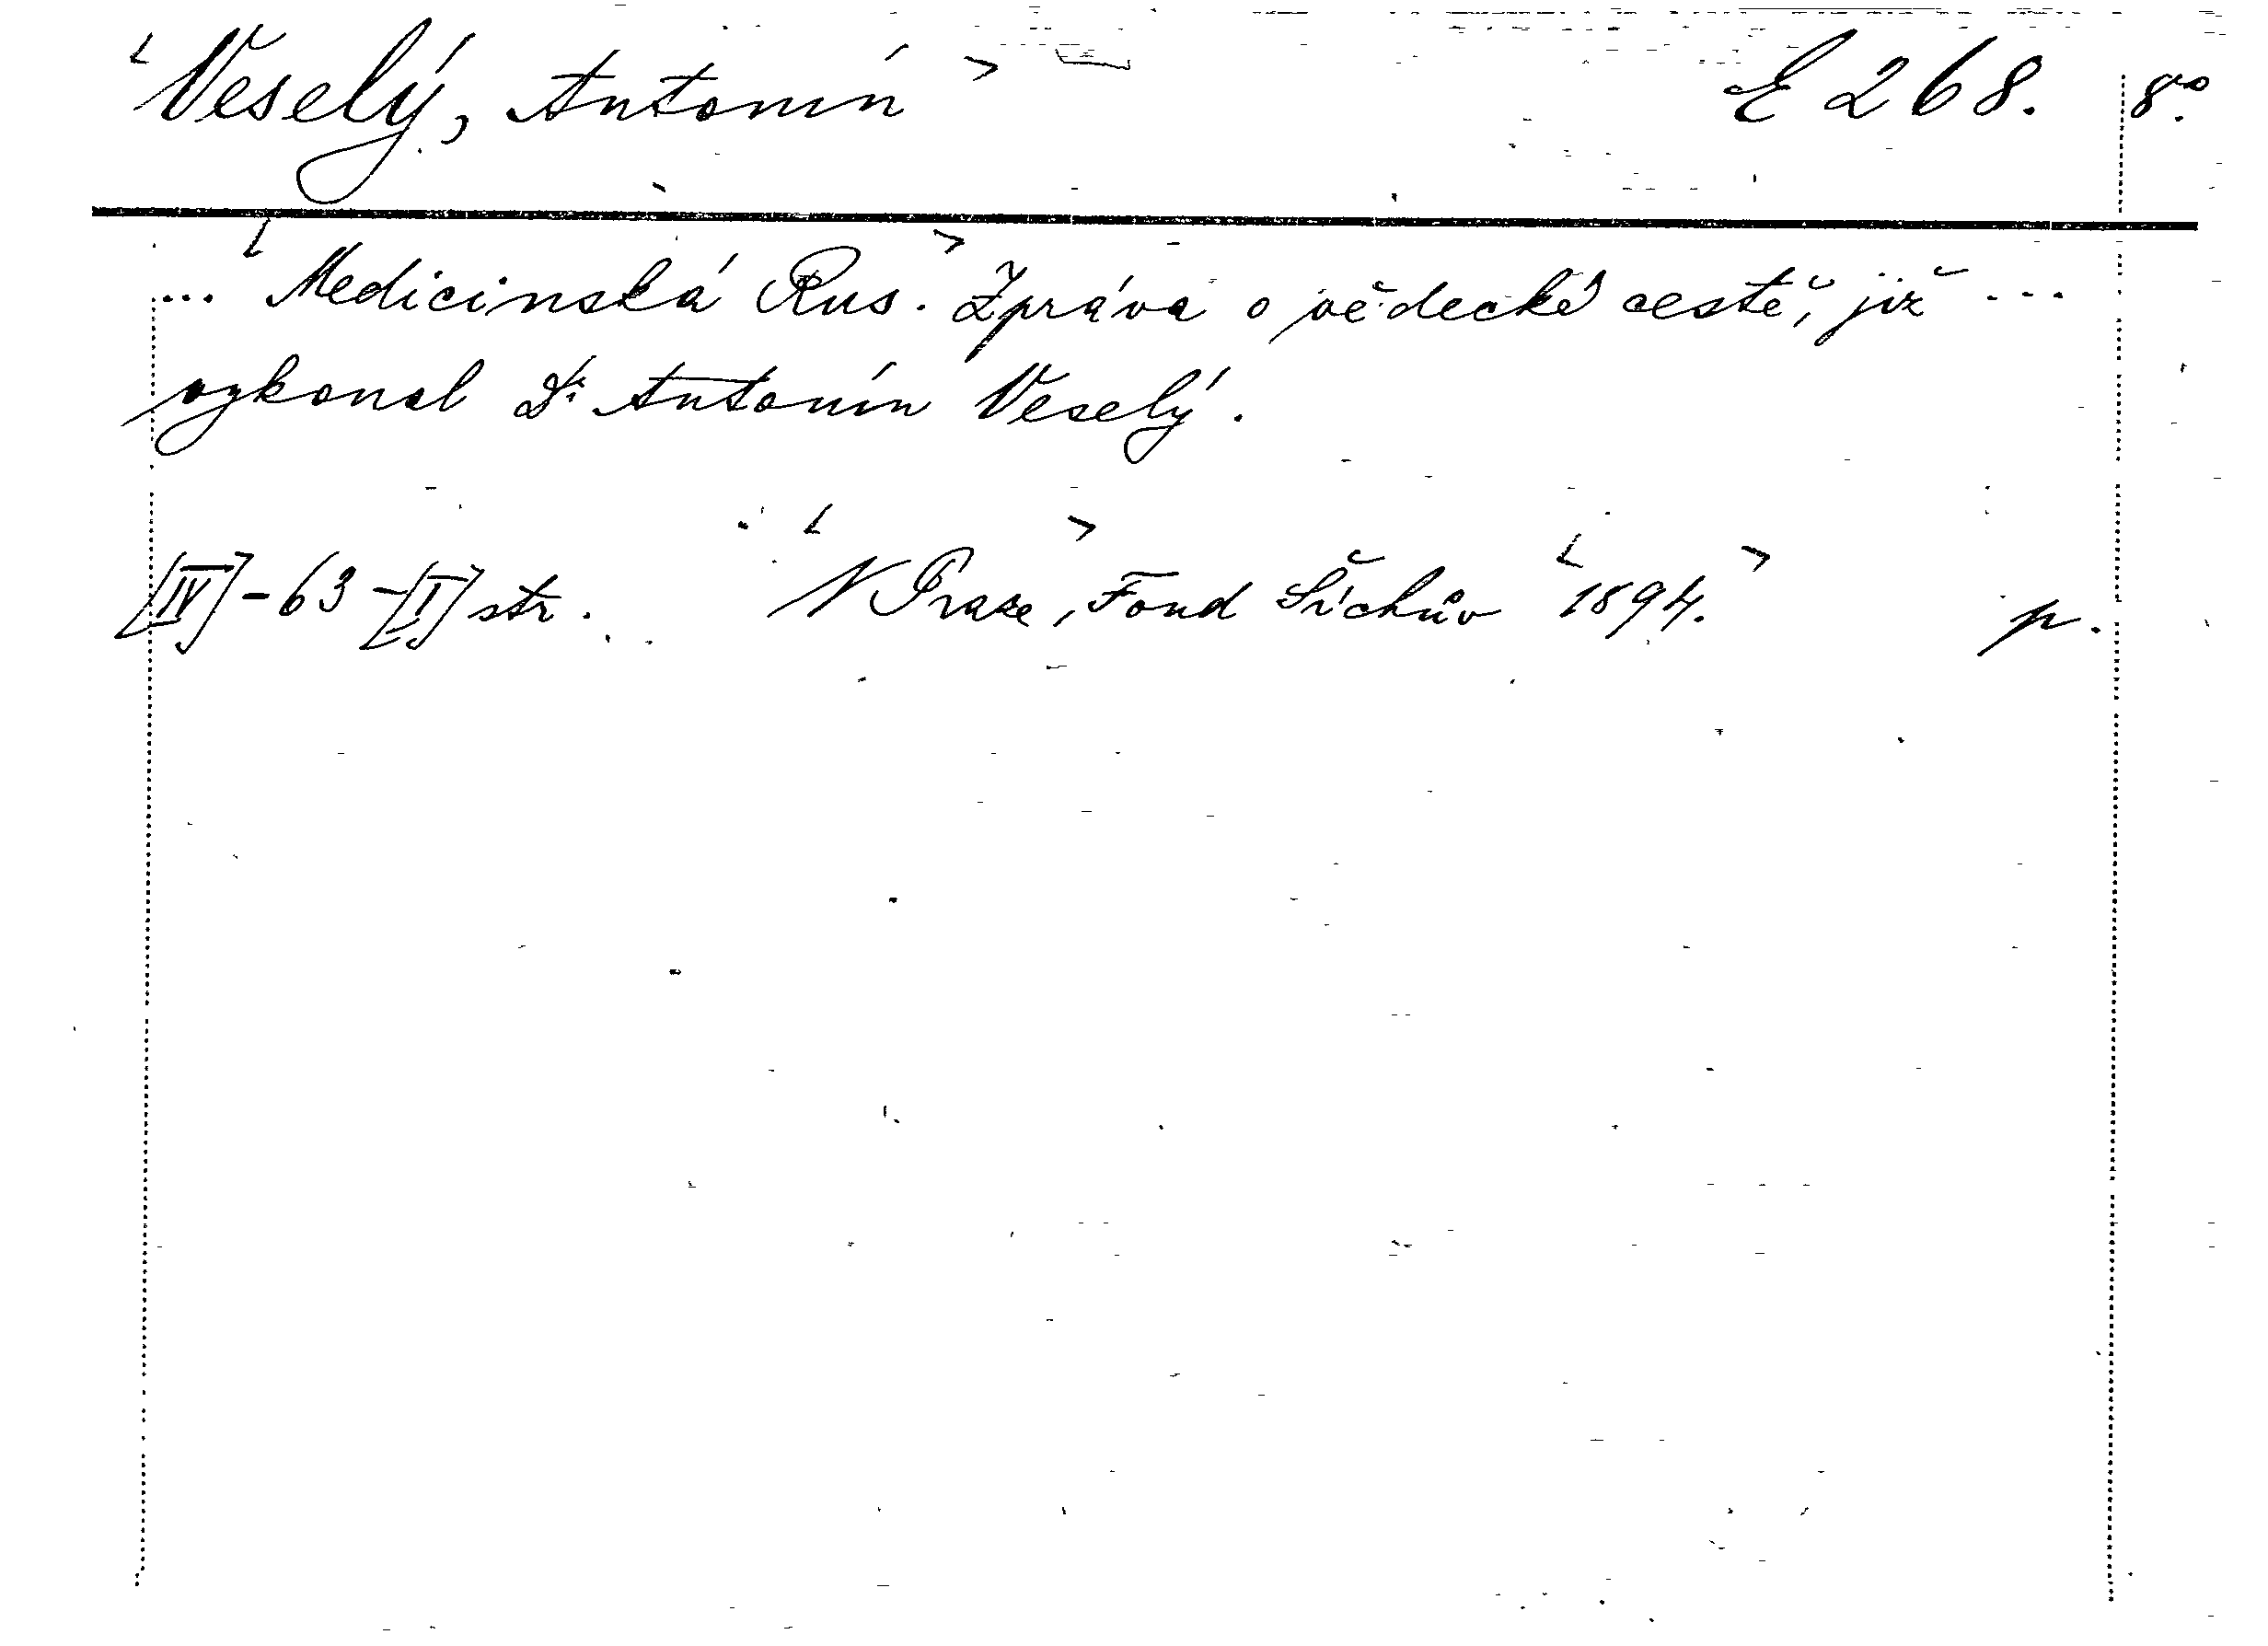 <Veselý, Antonín> E 268. 8°.
... <Medicinská Rus.> Zpráva o vědecké cestě, již ...
vykonal Dr Antonín Veselý.
[IV]-63-[I] str. <V Praze,> Fond Šíchův <1894.> p.